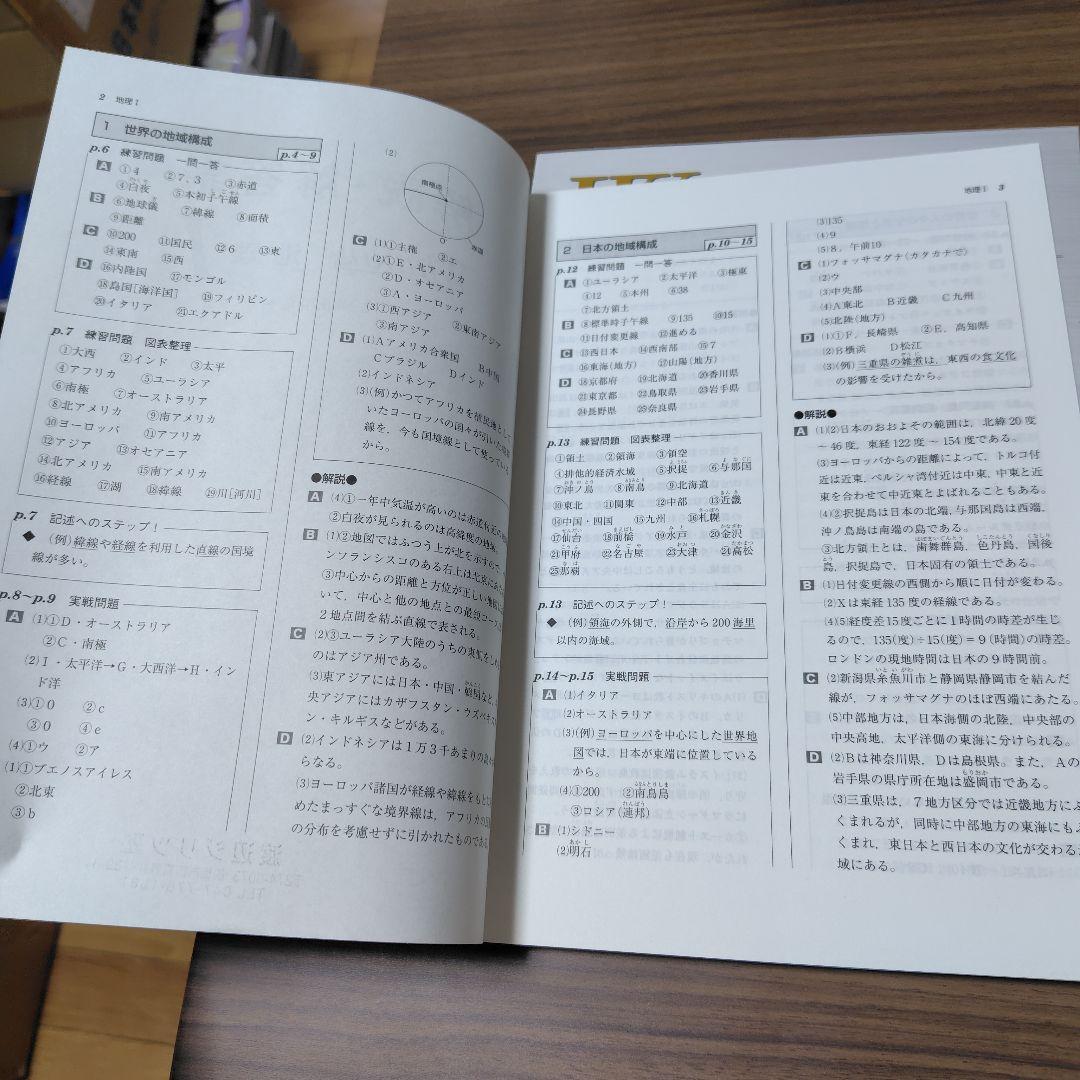 2 地理1
1 世界の地域構成
p.4～9
p.6 練習問題 一問一答
A ①4 ②7、3 ③赤道
④白夜 ⑤本初子午線
B ⑥地球儀 ⑦緯線 ⑧面積
⑨距離
C ⑩200 ⑪国民 ⑫6 ⑬東
⑭東南 ⑮西
D ⑯内陸国 ⑰モンゴル
⑱島国[海洋国] ⑲フィリピン
⑳イタリア ㉑エクアドル
p.7 練習問題 図表整理
①大西 ②インド ③太平
④アフリカ ⑤ユーラシア
⑥南極 ⑦オーストラリア
⑧北アメリカ ⑨南アメリカ
⑩ヨーロッパ ⑪アフリカ
⑫アジア ⑬オセアニア
⑭北アメリカ ⑮南アメリカ
⑯経線 ⑰湖 ⑱緯線 ⑲川[河川]
p.7 記述へのステップ！
◆ (例)緯線や経線を利用した直線の国境
線が多い。
p.8～p.9 実戦問題
A (1)①D・オーストラリア
②C・南極
(2)I・太平洋→G・大西洋→H・イン
ド洋
(3)①0 ②c
③0 ④e
(4)①ウ ②ア
(1)①ブエノスアイレス
②北東
③b
(2)
南極点
0
C (1)①主権 ②エ
(2)①E・北アメリカ
②D・オセアニア
③A・ヨーロッパ
(3)①西アジア ②東南アジア
③南アジア
D (1)Aアメリカ合衆国 B中国
Cブラジル Dインド
(2)インドネシア
(3)(例)かつてアフリカを植民地として
いたヨーロッパの国々が引いた
線を、今も国境線として使っている
から。
●解説●
A (4)①一年中気温が高いのは赤道
②白夜が見られるのは高緯度の地域。
B (1)②地図ではふつう上が北を示すので、
ンフランシスコの右上は北東に
③中心からの距離と方位が正しい
いて、中心と他の地点との最短コース
2地点間を結ぶ直線で表される。
C (2)③ユーラシア大陸のうちの東
のはアジア州である。
(3)東アジアには日本・中国・韓国など、
央アジアにはカザフスタン・ウズベキス
ン・キルギスなどがある。
D (2)インドネシアは1万3千あまりの
らなる。
(3)ヨーロッパ諸国が経線や緯線をもと
めたまっすぐな境界線は、アフリカの
の分布を考慮せずに引かれたものであ
地理1 3
2 日本の地域構成
p.10～15
p.12 練習問題 一問一答
A ①ユーラシア ②太平洋 ③極東
④12 ⑤本州 ⑥38
⑦北方領土
B ⑧標準時子午線 ⑨135 ⑩15
⑪日付変更線 ⑫進める
C ⑬西日本 ⑭西南部 ⑮7
⑯東海(地方) ⑰山陽(地方)
D ⑱京都府 ⑲北海道 ⑳香川県
㉑東京都 ㉒鳥取県 ㉓岩手県
㉔長野県 ㉕奈良県
p.13 練習問題 図表整理
①領土 ②領海 ③領空
④排他的経済水域 ⑤択捉 ⑥与那国
⑦沖ノ鳥 ⑧南鳥 ⑨北海道
⑩東北 ⑪関東 ⑫中部 ⑬近畿
⑭中国・四国 ⑮九州 ⑯札幌
⑰仙台 ⑱前橋 ⑲水戸 ⑳金沢
㉑甲府 ㉒名古屋 ㉓大津 ㉔高松
㉕那覇
p.13 記述へのステップ！
◆ (例)領海の外側で、沿岸から200海里
以内の海域。
p.14～p.15 実戦問題
A (1)イタリア
(2)オーストラリア
(3)(例)ヨーロッパを中心にした世界地
図では、日本が東端に位置している
から。
(4)①200 ②南鳥島
③ロシア(連邦)
B (1)シドニー
(2)明石
(3)135
(4)9
(5)8，午前10
C (1)フォッサマグナ(カタカナで)
(2)ウ
(3)中央部
(4)A東北 B近畿 C九州
(5)北陸(地方)
D (1)①F，長崎県 ②E，高知県
(2)B横浜 D松江
(3)(例)三重県の雑煮は、東西の食文化
の影響を受けたから。
●解説●
A (1)(2)日本のおおよその範囲は，北緯20度
～46度，東経122度～154度である。
(3)ヨーロッパからの距離によって，トルコ付
近は近東，ペルシャ湾付近は中東，中東と近
東を合わせて中近東とよばれることもある。
(4)②択捉島は日本の北端，与那国島は西端，
沖ノ鳥島は南端の島である。
③北方領土とは，歯舞群島，色丹島，国後
島，択捉島で，日本固有の領土である。
B (1)日付変更線の西側から順に日付が変わる。
(2)Xは東経135度の経線である。
(4)(5)経度差15度ごとに1時間の時差が生じ
るので，135(度)÷15(度)＝9(時間)の時差。
ロンドンの現地時間は日本の9時間前。
C (2)新潟県糸魚川市と静岡県静岡市を結んだ
線が，フォッサマグナのほぼ西端にあたる。
(5)中部地方は，日本海側の北陸，中央部の
中央高地，太平洋側の東海に分けられる。
D (2)Bは神奈川県，Dは島根県。また，Aの
岩手県の県庁所在地は盛岡市である。
(3)三重県は，7地方区分では近畿地方にふ
くまれるが，同時に中部地方の東海にも
くまれ，東日本と西日本の文化が交わる
域にある。